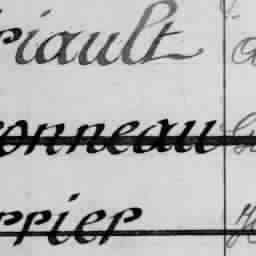 riault
onneau
rrier